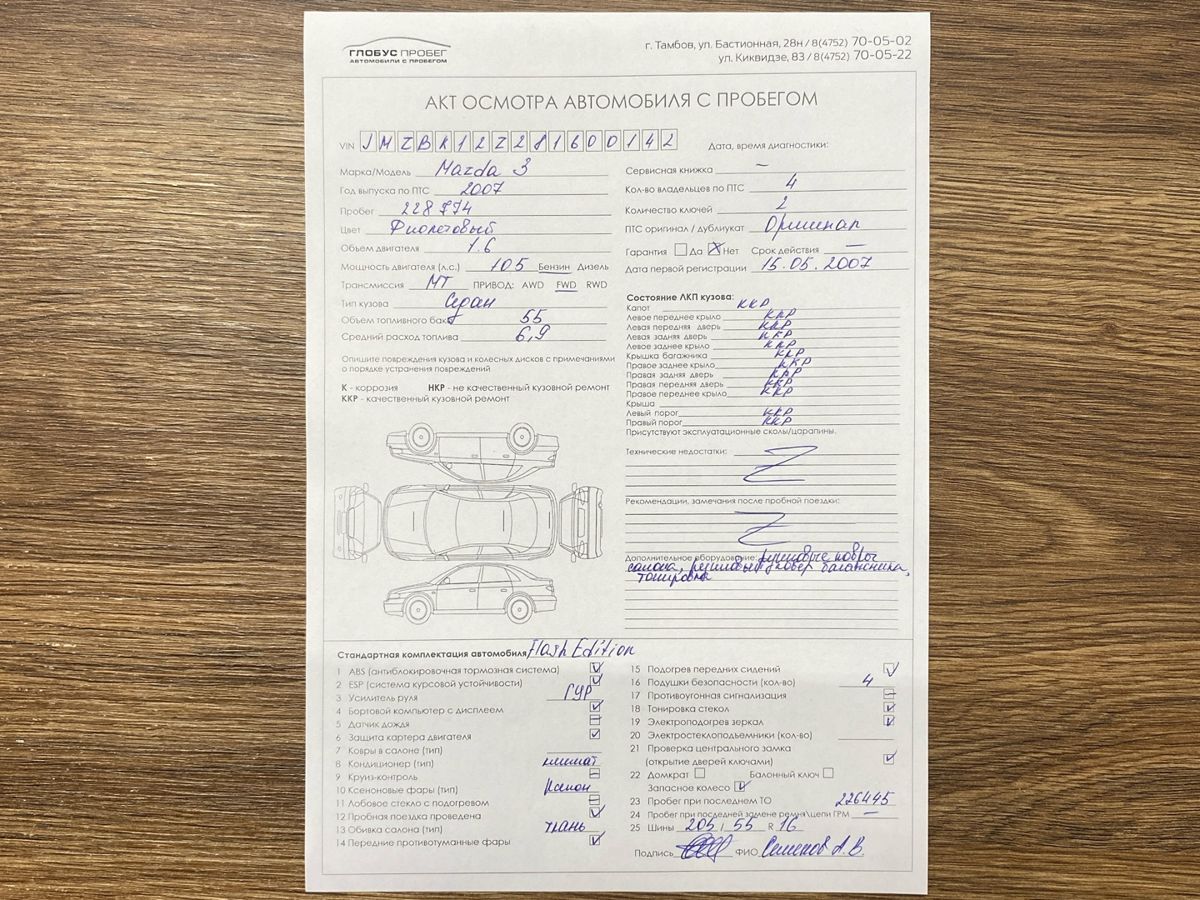 ГЛОБУС ПРОБЕГ
АВТОМОБИЛИ С ПРОБЕГОМ
г. Тамбов, ул. Бастионная, 28н / 8(4752) 70-05-02
ул. Киквидзе, 83 / 8(4752) 70-05-22
АКТ ОСМОТРА АВТОМОБИЛЯ С ПРОБЕГОМ
VIN JMZBK12Z281600142
Дата, время диагностики:
Марка/Модель Mazda 3
Год выпуска по ПТС 2007
Пробег 228774
Цвет Фиолетовый
Объем двигателя 1.6
Мощность двигателя (л.с.) 105 Бензин Дизель
Трансмиссия МТ ПРИВОД: AWD FWD RWD
Тип кузова Седан
Объем топливного бака 55
Средний расход топлива 6,9
Опишите повреждения кузова и колесных дисков с примечаниями
о порядке устранения повреждений
К - коррозия НКР - не качественный кузовной ремонт
ККР - качественный кузовной ремонт
Сервисная книжка —
Кол-во владельцев по ПТС 4
Количество ключей 2
ПТС оригинал / дубликат Оригинал
Гарантия Да Нет Срок действия —
Дата первой регистрации 15.05.2007
Состояние ЛКП кузова:
Капот ККР
Левое переднее крыло ККР
Левая передняя дверь ККР
Левая задняя дверь ККР
Левое заднее крыло ККР
Крышка багажника ККР
Правое заднее крыло ККР
Правая задняя дверь ККР
Правая передняя дверь ККР
Правое переднее крыло ККР
Крыша
Левый порог ККР
Правый порог ККР
Присутствуют эксплуатационные сколы/царапины.
Технические недостатки: Z
Рекомендации, замечания после пробной поездки:
Z
Дополнительное оборудование: резиновые ковры
салона, резиновый ковер багажника,
тонировка
Стандартная комплектация автомобиля Flash Edition
1 ABS (антиблокировочная тормозная система)
2 ESP (система курсовой устойчивости)
3 Усилитель руля ГУР
4 Бортовой компьютер с дисплеем
5 Датчик дождя
6 Защита картера двигателя
7 Ковры в салоне (тип)
8 Кондиционер (тип) климат
9 Круиз-контроль
10 Ксеноновые фары (тип) Ксенон
11 Лобовое стекло с подогревом
12 Пробная поездка проведена
13 Обивка салона (тип) ткань
14 Передние противотуманные фары
15 Подогрев передних сидений
16 Подушки безопасности (кол-во) 4
17 Противоугонная сигнализация
18 Тонировка стекол
19 Электроподогрев зеркал
20 Электростеклоподъемники (кол-во)
21 Проверка центрального замка
(открытие дверей ключами)
22 Домкрат Балонный ключ
Запасное колесо
23 Пробег при последнем ТО 226445
24 Пробег при последней замене ремня\цепи ГРМ —
25 Шины 205 / 55 R 16
Подпись ФИО Семенов А.В.